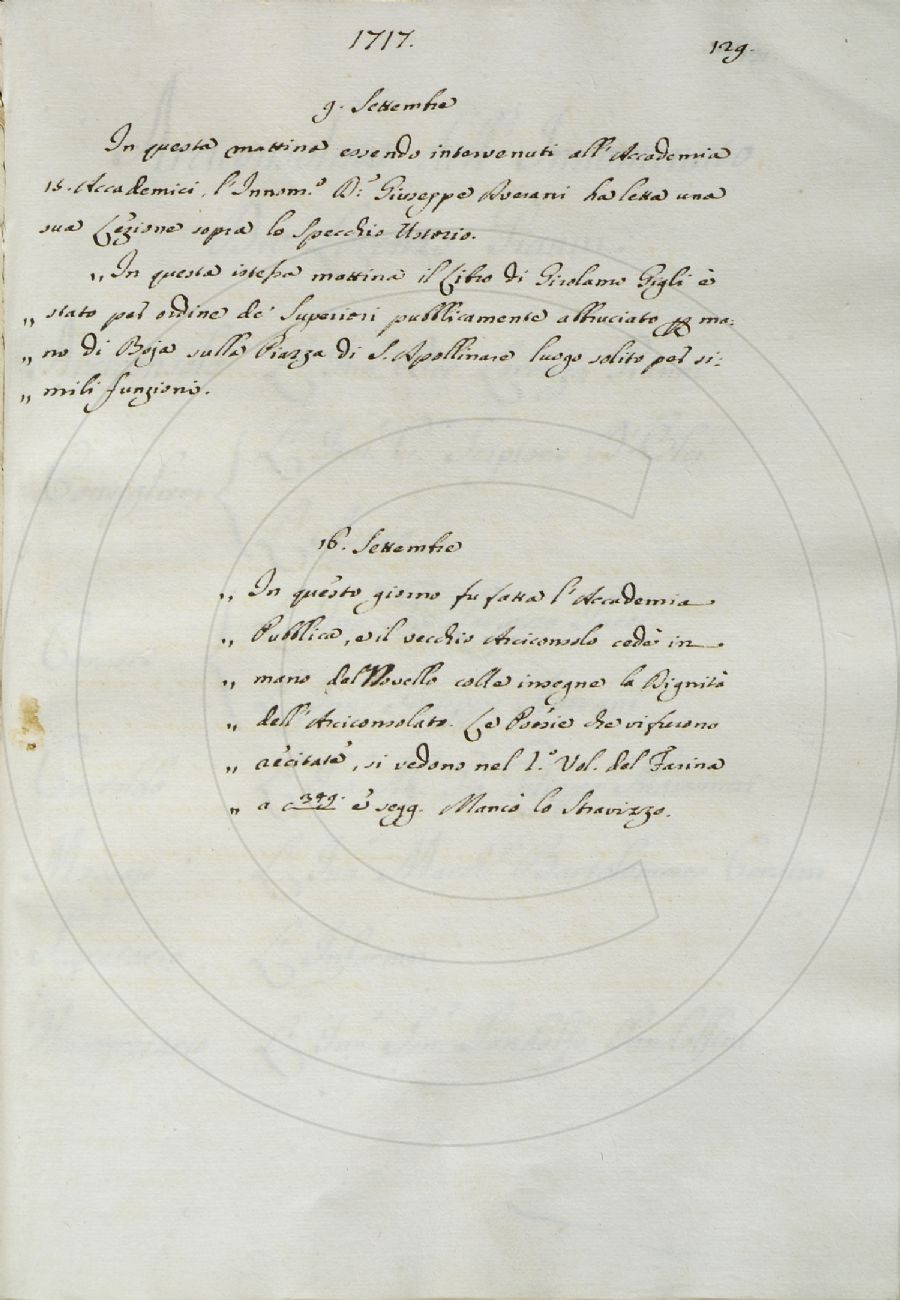 1717.
129.
9. Settembre
In questa mattina essendo intervenuti all'Accademia
15. Accademici, l'Innom.º D.r Giuseppe Averani ha letta una
sua Lezione sopra lo Specchio Ustorio.
„ In questa istessa mattina il Libro di Girolamo Gigli è
„ stato per ordine de' Superiori pubblicamente abbruciato per ma:
„ no di Boja sulla Piazza di S. Apollinare luogo solito per si:
„ mili funzioni.
16. Settembre
„ In questo giorno fu fatta l'Accademia
„ Pubblica, e il vecchio Arciconsolo cedè in
„ mano del Novello colle insegne la Dignità
„ dell'Arciconsolato. Le Poesie che vi furono
„ recitate, si vedono nel 1.º Vol. del Farina
„ a c 349. e segg. Mancò lo Stravizzo.